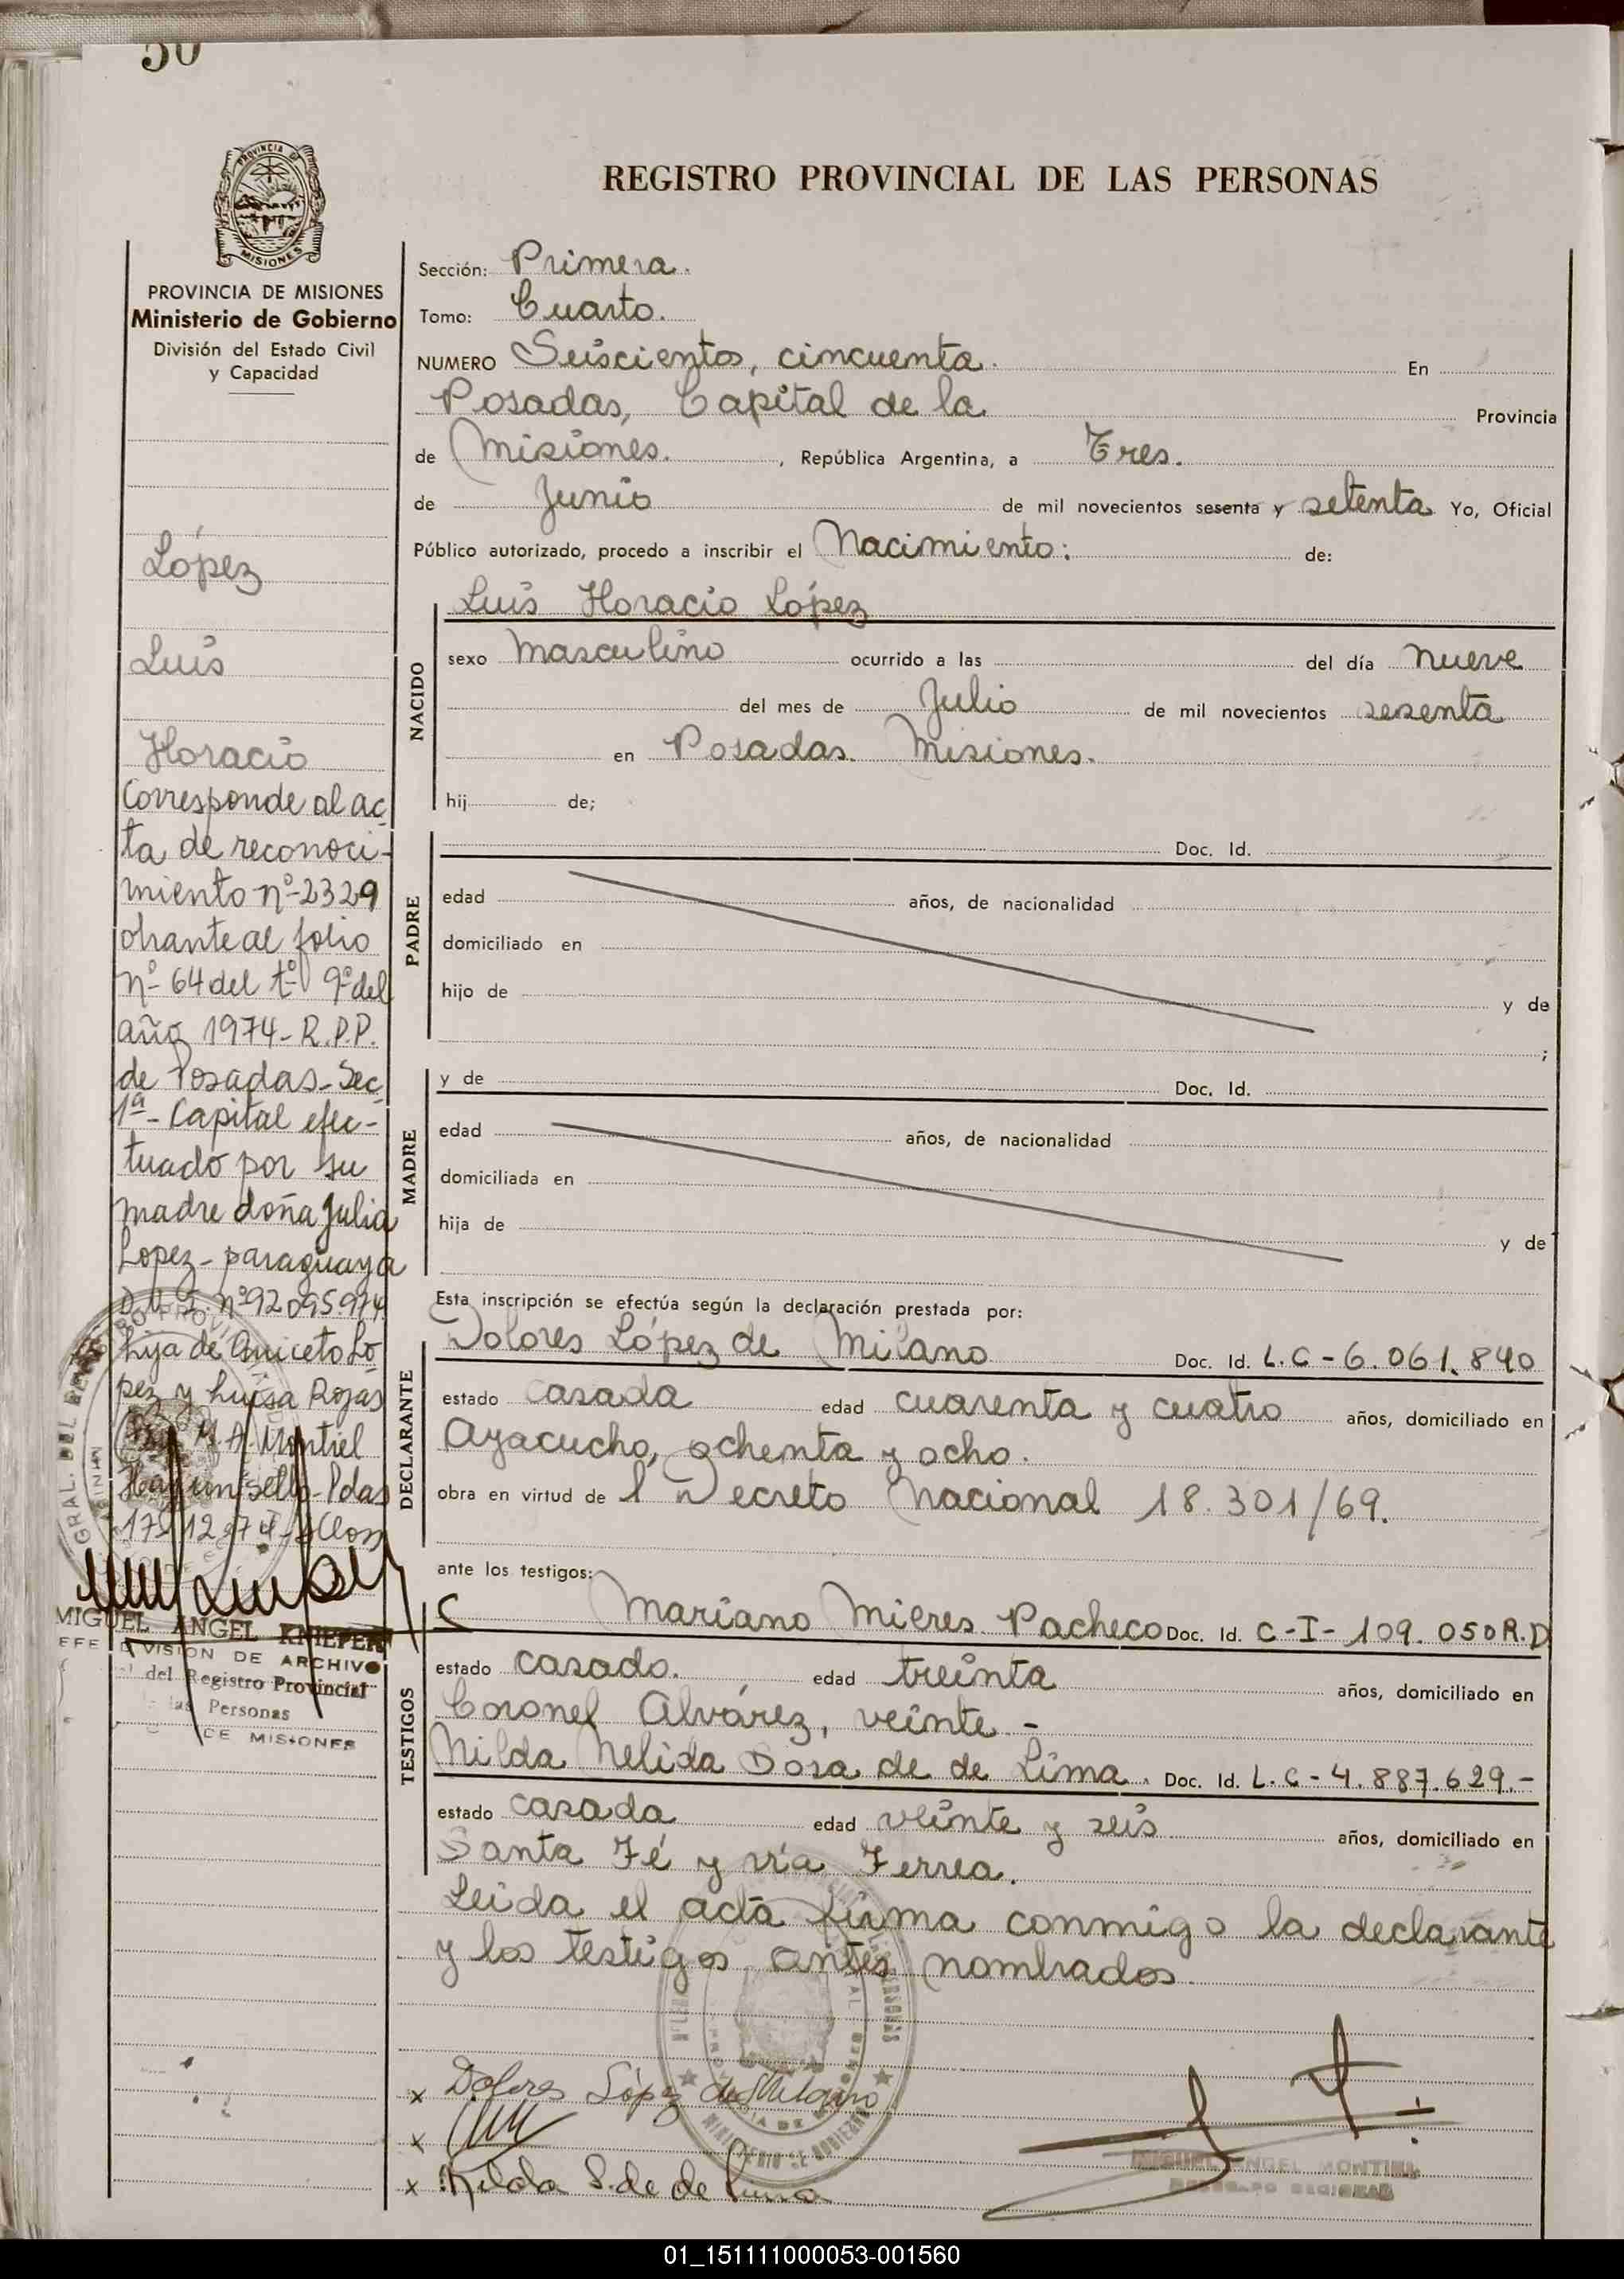 50
PROVINCIA DE
MISIONES
REGISTRO PROVINCIAL DE LAS PERSONAS
PROVINCIA DE MISIONES
Ministerio de Gobierno
División del Estado Civil
y Capacidad
López
Luis
Horacio
Corresponde al ac-
ta de reconoci-
miento nº 2329
obrante al folio
nº 64 del tº 9º del
año 1974 - R.P.P.
de Posadas - Sec
1ª - Capital efec-
tuado por su
madre doña Julia
Lopez - paraguaya
D.N.I. nº 92.095.974
hija de Aniceto Ló
pez y Luisa Rojas
M. A. Montiel
Hay un sello - Pdas
17/12/74
MIGUEL ANGEL KNIEPER
JEFE DIVISION DE ARCHIVO
del Registro Provincial
las Personas
DE MISIONES
Sección: Primera.
Tomo: Cuarto.
NUMERO Seiscientos, cincuenta. En
Posadas, Capital de la Provincia
de Misiones. , República Argentina, a Tres.
de Junio de mil novecientos sesenta y setenta Yo, Oficial
Público autorizado, procedo a inscribir el Nacimiento: de:
NACIDO
Luis Horacio López
sexo Masculino ocurrido a las del día nueve
del mes de Julio de mil novecientos sesenta
en Posadas. Misiones.
hij de;
PADRE
Doc. Id.
edad años, de nacionalidad
domiciliado en
hijo de y de
;
MADRE
y de Doc. Id.
edad años, de nacionalidad
domiciliada en
hija de y de
Esta inscripción se efectúa según la declaración prestada por:
DECLARANTE
Dolores López de Milano Doc. Id. L.C - 6.061.840
estado casada edad cuarenta y cuatro años, domiciliado en
Ayacucho, ochenta y ocho.
obra en virtud de l Decreto Nacional 18.301/69.
ante los testigos:
TESTIGOS
Mariano Mieres Pacheco Doc. Id. C-I- 109.050 R.D
estado casado. edad treinta años, domiciliado en
Coronel Alvárez, veinte -
Nilda Nelida Sosa de de Lima. Doc. Id. L.C - 4.887.629.-
estado casada edad veinte y seis años, domiciliado en
Santa Fé y vía Ferrea.
Leida el acta firma conmigo la declarante
y los testigos antes nombrados.
x Dolores López de Milano
x
x Nilda S. de de Lima
MIGUEL ANGEL MONTIEL
01_151111000053-001560